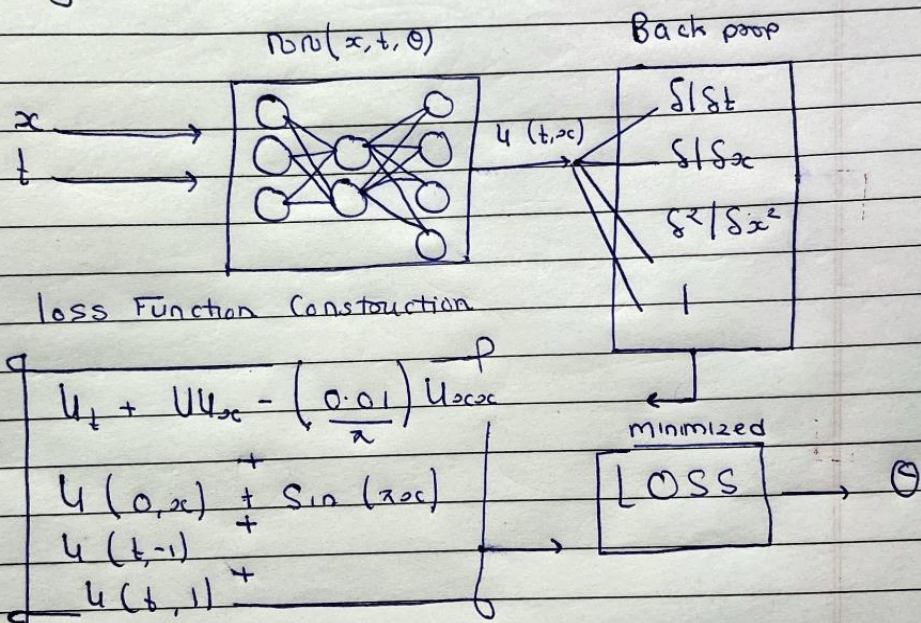 NN(x, t, θ)
Back prop
x
t
u (t,x)
δ/δt
δ/δx
δ²/δx²
1
loss Function Construction
u_t + UU_x - (0.01/π) U_xx
+
u (0,x) + Sin (πx)
+
u (t,-1)
+
u (t, 1)
minimized
LOSS
θ